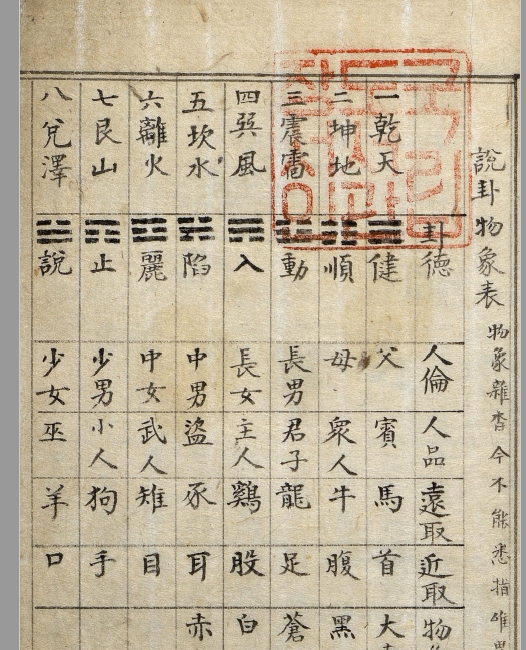 說卦物象表 物象雜沓今不能悉指唯
卦德 人倫 人品 遠取 近取 物
一乾天 ☰ 健 父 賓 馬 首 大
二坤地 ☷ 順 母 衆人 牛 腹 黑
三震雷 ☳ 動 長男 君子 龍 足 蒼
四巽風 ☴ 入 長女 主人 鷄 股 白
五坎水 ☵ 陷 中男 盜 豕 耳 赤
六離火 ☲ 麗 中女 武人 雉 目
七艮山 ☶ 止 少男 小人 狗 手
八兌澤 ☱ 說 少女 巫 羊 口